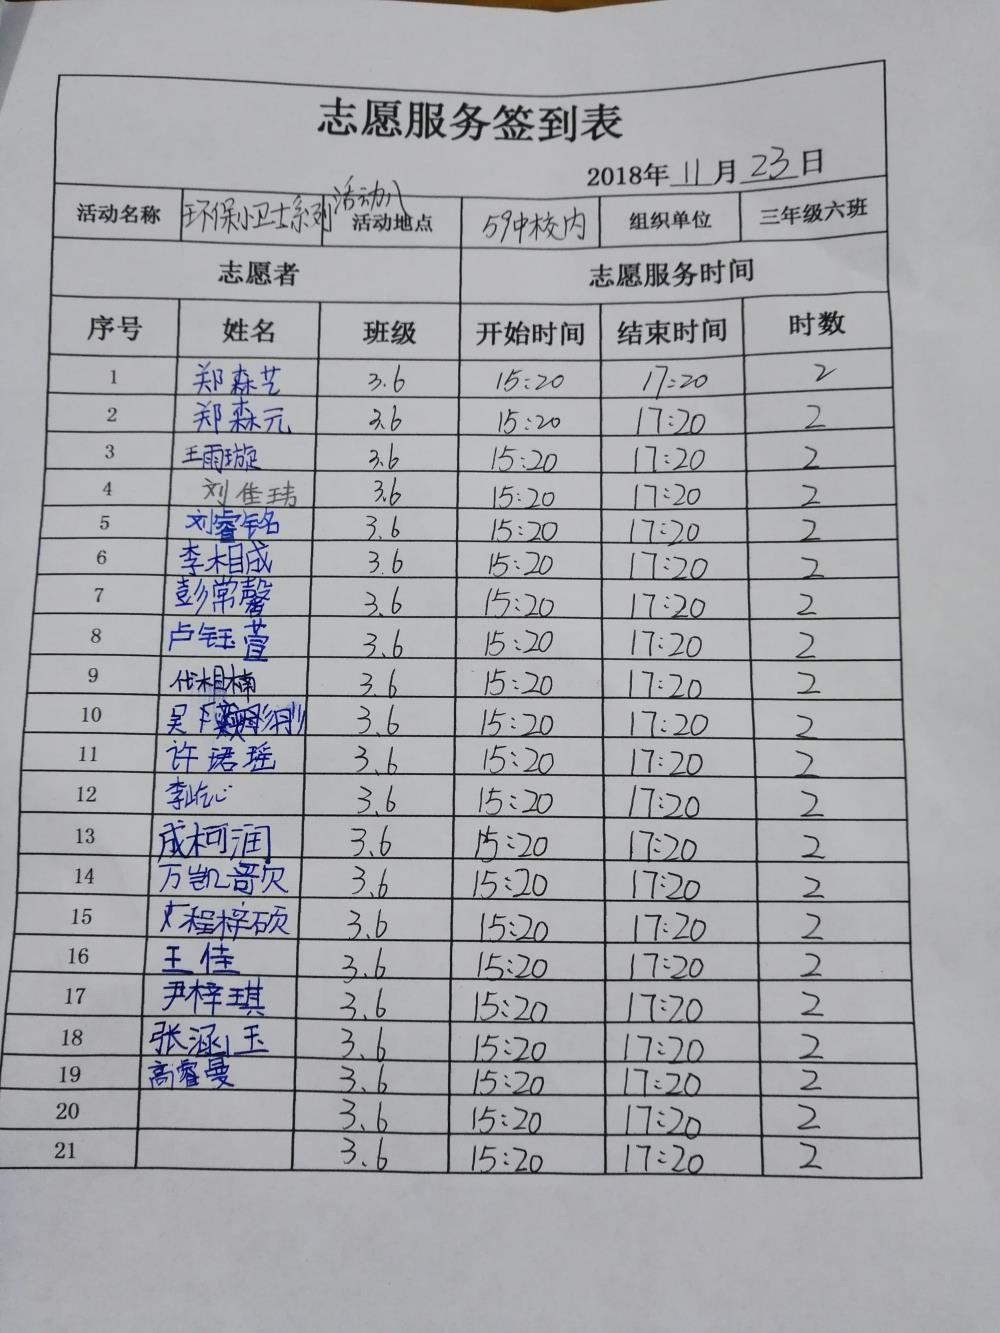 志愿服务签到表
2018年11月23日
活动名称 环保小卫士系列活动八 活动地点 59中校内 组织单位 三年级六班
志愿者 志愿服务时间
序号 姓名 班级 开始时间 结束时间 时数
1 郑森艺 3.6 15:20 17:20 2
2 郑森元 3.6 15:20 17:20 2
3 王雨璇 3.6 15:20 17:20 2
4 刘佳玮 3.6 15:20 17:20 2
5 刘睿铭 3.6 15:20 17:20 2
6 李相成 3.6 15:20 17:20 2
7 彭常馨 3.6 15:20 17:20 2
8 卢钰萱 3.6 15:20 17:20 2
9 代相楠 3.6 15:20 17:20 2
10 吴 3.6 15:20 17:20 2
11 许珺瑶 3.6 15:20 17:20 2
12 李屹心 3.6 15:20 17:20 2
13 成柯润 3.6 15:20 17:20 2
14 万凯 3.6 15:20 17:20 2
15 程梓硕 3.6 15:20 17:20 2
16 王佳 3.6 15:20 17:20 2
17 尹梓琪 3.6 15:20 17:20 2
18 张涵玉 3.6 15:20 17:20 2
19 高睿曼 3.6 15:20 17:20 2
20 3.6 15:20 17:20 2
21 3.6 15:20 17:20 2